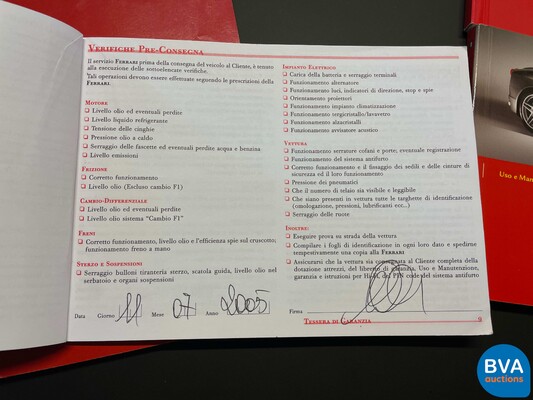 VERIFICHE PRE-CONSEGNA
Il servizio FERRARI prima della consegna del veicolo al Cliente, è tenuto
alla esecuzione delle sottoelencate verifiche.
Tali operazioni devono essere effettuate seguendo le prescrizioni della
FERRARI.
MOTORE
❑ Livello olio ed eventuali perdite
❑ Livello liquido refrigerante
❑ Tensione delle cinghie
❑ Pressione olio a caldo
❑ Serraggio delle fascette ed eventuali perdite acqua e benzina
❑ Livello emissioni
FRIZIONE
❑ Corretto funzionamento
❑ Livello olio (Escluso cambio F1)
CAMBIO-DIFFERENZIALE
❑ Livello olio ed eventuali perdite
❑ Livello olio sistema "Cambio F1"
FRENI
❑ Corretto funzionamento, livello olio e l'efficienza spie sul cruscotto,
funzionamento freno a mano
STERZO E SOSPENSIONI
❑ Serraggio bulloni tiranteria sterzo, scatola guida, livello olio nel
serbatoio e organi sospensioni
Data Giorno 11 Mese 07 Anno 2005
IMPIANTO ELETTRICO
❑ Carica della batteria e serraggio terminali
❑ Funzionamento alternatore
❑ Funzionamento luci, indicatori di direzione, stop e spie
❑ Orientamento proiettori
❑ Funzionamento impianto climatizzazione
❑ Funzionamento tergicristallo/lavavetro
❑ Funzionamento alzacristalli
❑ Funzionamento avvisatore acustico
VETTURA
❑ Funzionamento serrature cofani e porte; eventuale registrazione
❑ Funzionamento del sistema antifurto
❑ Corretto funzionamento e il fissaggio dei sedili e delle cinture di
sicurezza ed il loro funzionamento
❑ Pressione dei pneumatici
❑ Che il numero di telaio sia visibile e leggibile
❑ Che siano presenti in vettura tutte le targhette di identificazione
(omologazione, pressioni, lubrificanti ecc..)
❑ Serraggio delle ruote
INOLTRE:
❑ Eseguire prova su strada della vettura
❑ Compilare i fogli di identificazione in ogni loro dato e spedirne
tempestivamente una copia alla FERRARI
❑ Assicurarsi che la vettura sia consegnata al Cliente completa della
dotazione attrezzi, del libretto di garanzia, Uso e Manutenzione,
garanzia e istruzioni per Hi-Fi, del PIN code del sistema antifurto
Firma
TESSERA DI GARANZIA 9
Uso e Man
BVA
auctions